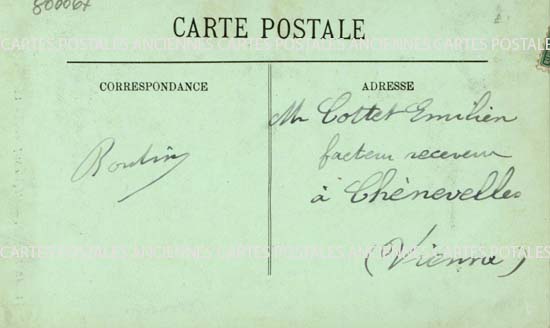 800064
CARTE POSTALE
CARTES POSTALES ANCIENNES CARTES POSTALES ANCIENNES CARTES POSTALES
CORRESPONDANCE
ADRESSE
Mr Cottet Emilien
facteur receveur
à Chênevelles
(Vienne)
Boutin
CARTES POSTALES ANCIENNES CARTES POSTALES ANCIENNES CARTES POSTALES